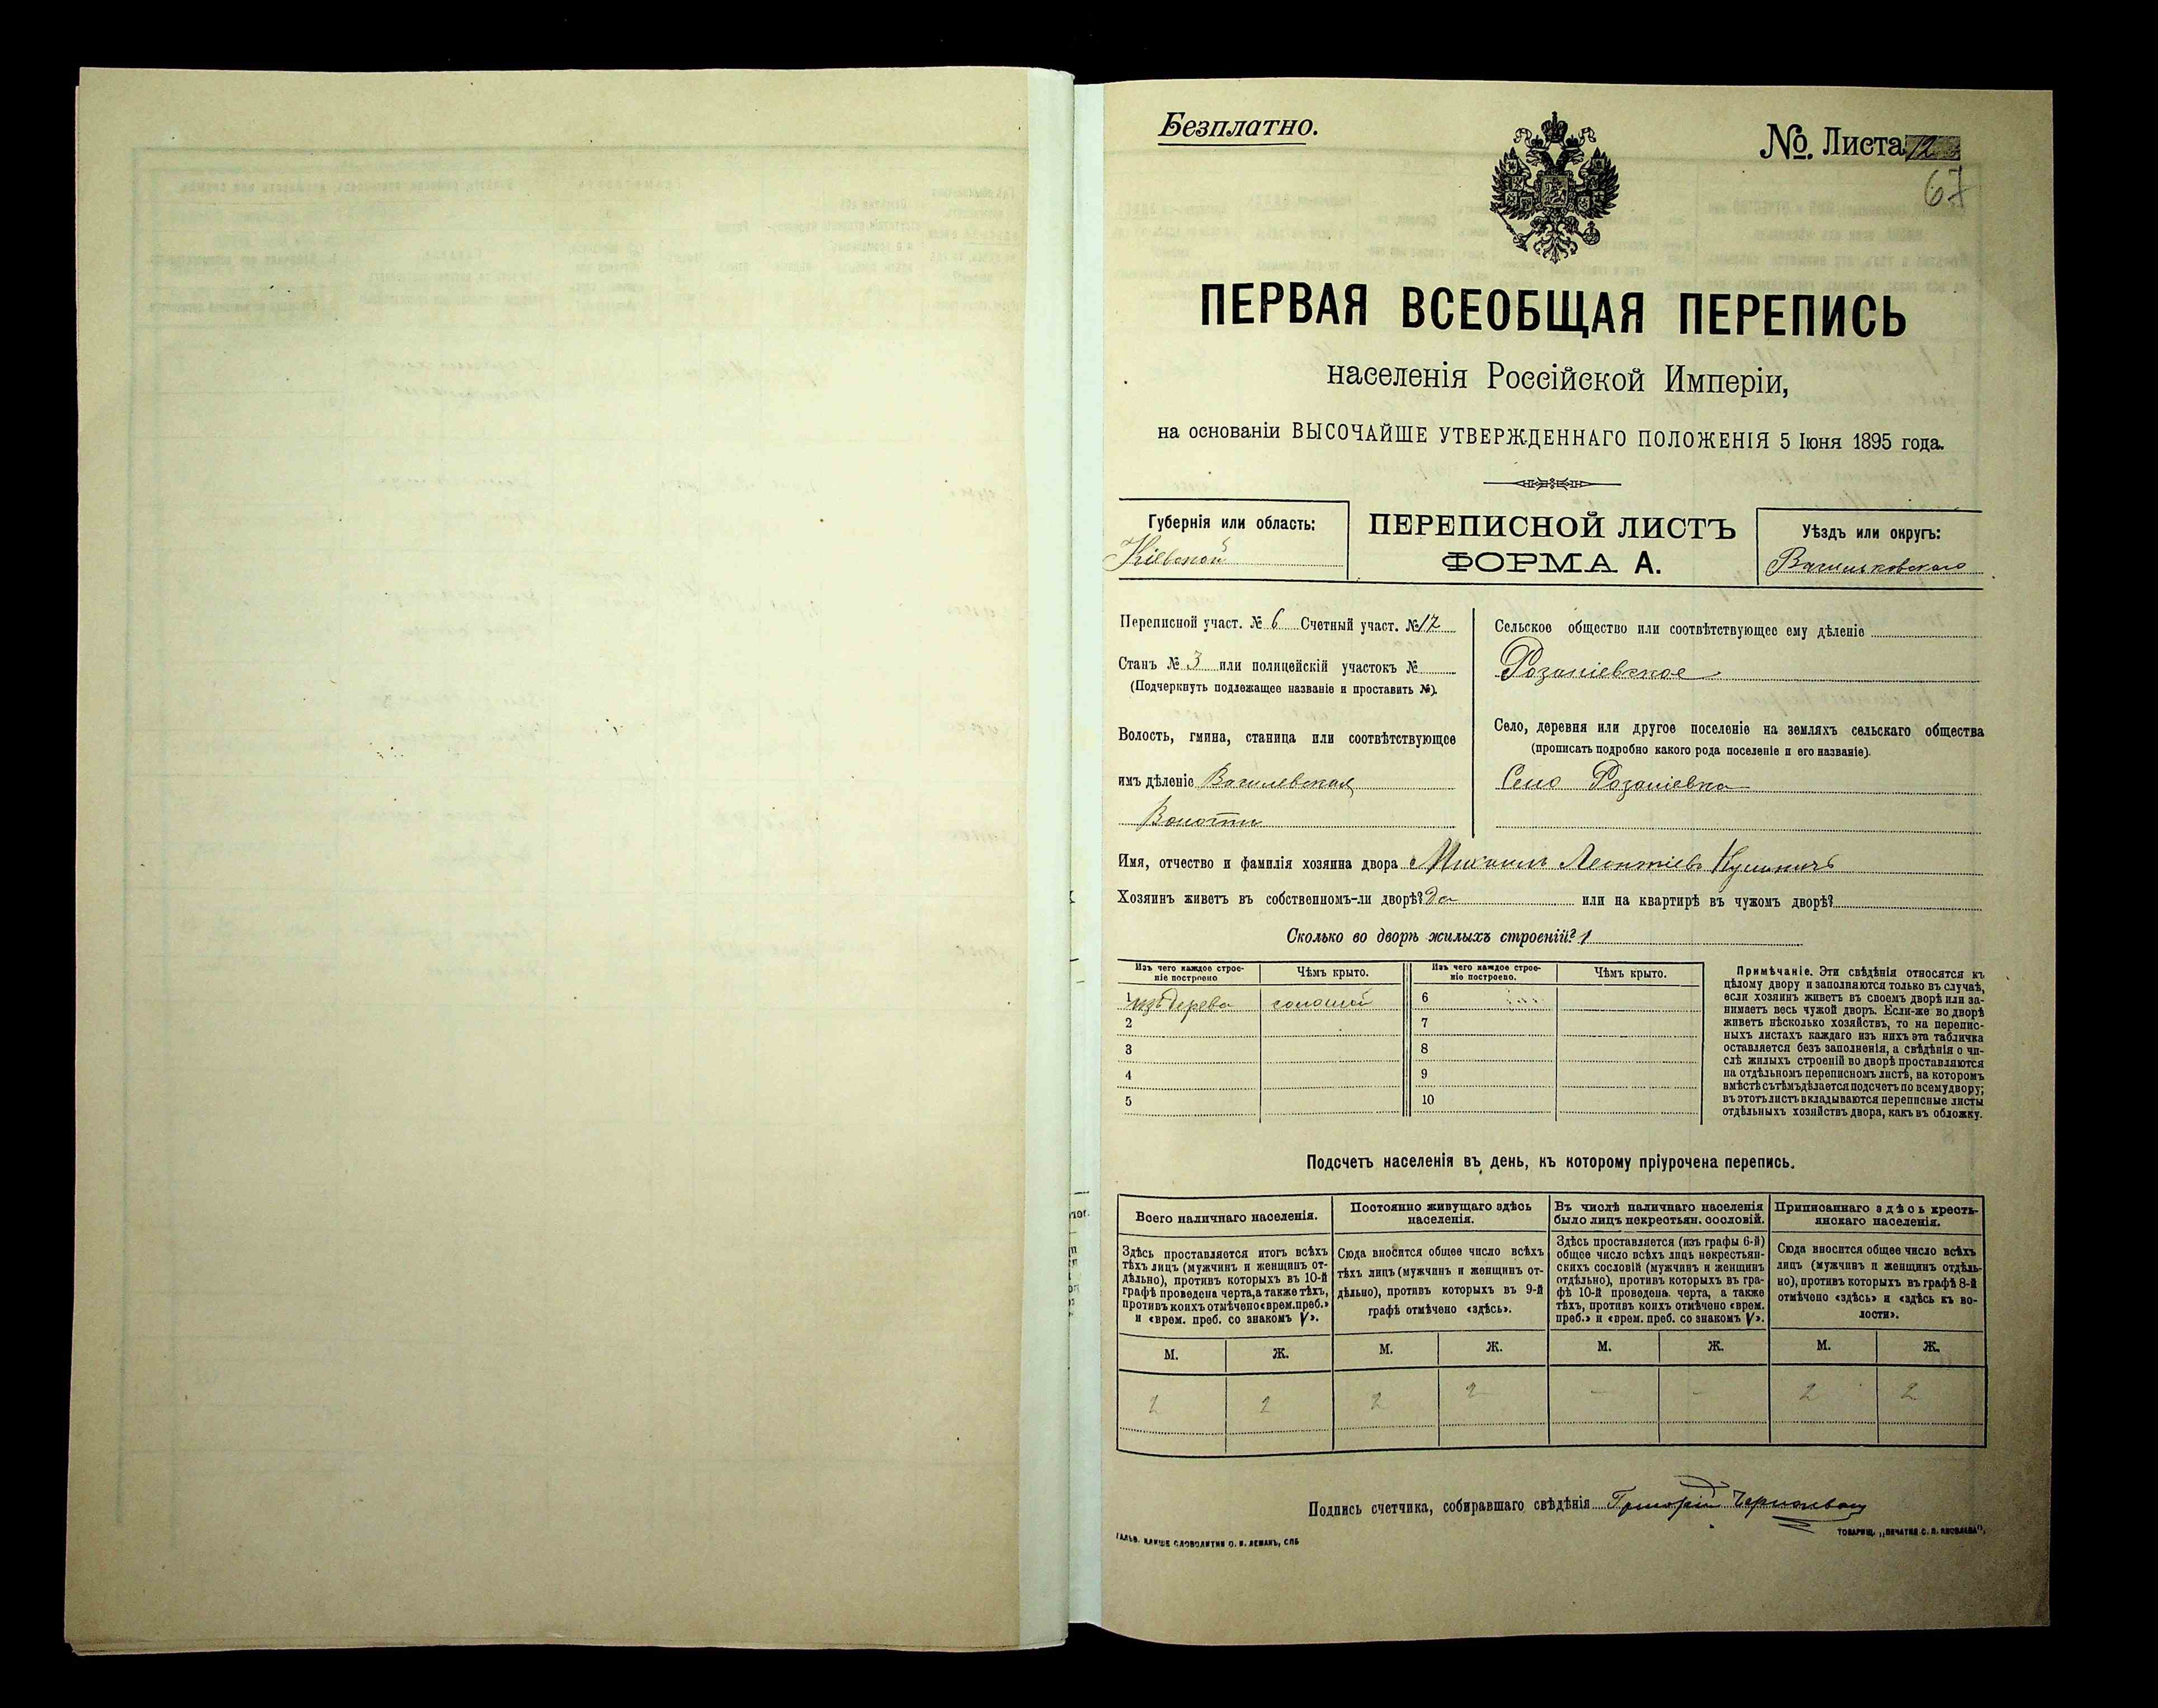 Безплатно.
№ Листа 12
67
ПЕРВАЯ ВСЕОБЩАЯ ПЕРЕПИСЬ
населенія Россійской Имперіи,
на основаніи ВЫСОЧАЙШЕ УТВЕРЖДЕННАГО ПОЛОЖЕНІЯ 5 Іюня 1895 года.
Губернія или область:
Кіевской
ПЕРЕПИСНОЙ ЛИСТЪ
ФОРМА А.
Уѣздъ или округъ:
Васильковскаго
Переписной участ. № 6 Счетный участ. № 12
Станъ № 3 или полицейскій участокъ №
(Подчеркнуть подлежащее названіе и проставить №).
Волость, гмина, станица или соотвѣтствующее
имъ дѣленіе
Волости
Сельское общество или соотвѣтствующее ему дѣленіе
Село, деревня или другое поселеніе на земляхъ сельскаго общества
(прописать подробно какого рода поселеніе и его названіе).
Село
Имя, отчество и фамилія хозяина двора Михаилъ Леонтіевъ
Хозяинъ живетъ въ собственномъ-ли дворѣ? Да или на квартирѣ въ чужомъ дворѣ?
Сколько во дворѣ жилыхъ строеній? 1
Изъ чего каждое строе-
ніе построено
Чѣмъ крыто.
Изъ чего каждое строе-
ніе построено.
Чѣмъ крыто.
1 изъ дерева соломой
2
3
4
5
6
7
8
9
10
Примѣчаніе. Эти свѣдѣнія относятся къ
цѣлому двору и заполняются только въ случаѣ,
если хозяинъ живетъ въ своемъ дворѣ или за-
нимаетъ весь чужой дворъ. Если-же во дворѣ
живетъ нѣсколько хозяйствъ, то на перепис-
ныхъ листахъ каждаго изъ нихъ эта табличка
оставляется безъ заполненія, а свѣдѣнія о чи-
слѣ жилыхъ строеній во дворѣ проставляются
на отдѣльномъ переписномъ листѣ, на которомъ
вмѣстѣ съ тѣмъ дѣлается подсчетъ по всему двору;
въ этотъ листъ вкладываются переписные листы
отдѣльныхъ хозяйствъ двора, какъ въ обложку.
Подсчетъ населенія въ день, къ которому пріурочена перепись.
Всего наличнаго населенія.
Здѣсь проставляется итогъ всѣхъ
тѣхъ лицъ (мужчинъ и женщинъ от-
дѣльно), противъ которыхъ въ 10-й
графѣ проведена черта, а также тѣхъ,
противъ коихъ отмѣчено «врем. преб.»
и «врем. преб. со знакомъ V».
Постоянно живущаго здѣсь
населенія.
Сюда вносится общее число всѣхъ
тѣхъ лицъ (мужчинъ и женщинъ от-
дѣльно), противъ которыхъ въ 9-й
графѣ отмѣчено «здѣсь».
Въ числѣ наличнаго населенія
было лицъ некрестьян. сословій.
Здѣсь проставляется (изъ графы 6-й)
общее число всѣхъ лицъ некрестьян-
скихъ сословій (мужчинъ и женщинъ
отдѣльно), противъ которыхъ въ гра-
фѣ 10-й проведена черта, а также
тѣхъ, противъ коихъ отмѣчено «врем.
преб.» и «врем. преб. со знакомъ V».
Приписаннаго здѣсь кресть-
янскаго населенія.
Сюда вносится общее число всѣхъ
лицъ (мужчинъ и женщинъ отдѣль-
но), противъ которыхъ въ графѣ 8-й
отмѣчено «здѣсь» и «здѣсь къ во-
лости».
М. Ж. М. Ж. М. Ж. М. Ж.
2 2 2 2 - - 2 2
Подпись счетчика, собиравшаго свѣдѣнія Григорій
ГАЛЬВ. КЛИШЕ СЛОВОЛИТНИ О. И. ЛЕМАНЪ, СПБ
ТОВАРИЩ. „ПЕЧАТНЯ С. П. ЯКОВЛЕВА“,